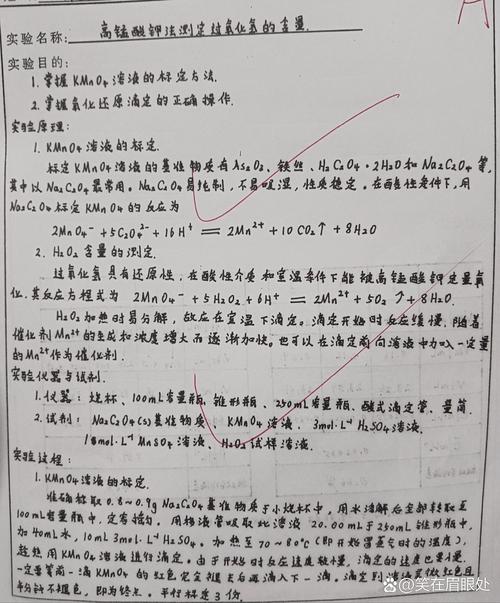 A
实验名称: 高锰酸钾法测定过氧化氢的含量.
实验目的:
1. 掌握 KMnO4 溶液的标定方法.
2. 掌握氧化还原滴定的正确操作.
实验原理:
1. KMnO4 溶液的标定.
标定 KMnO4 溶液的基准物质有 As2O3、铁丝、H2C2O4·2H2O 和 Na2C2O4 等,
其中以 Na2C2O4 最常用。Na2C2O4 易纯制,不易吸湿,性质稳定。在酸性条件下,用
Na2C2O4 标定 KMnO4 的反应为
2MnO4⁻ + 5C2O4²⁻ + 16H⁺ == 2Mn²⁺ + 10CO2↑ + 8H2O
2. H2O2 含量的测定.
过氧化氢具有还原性,在酸性介质和室温条件下能被高锰酸钾定量氧
化,其反应方程式为 2MnO4⁻ + 5H2O2 + 6H⁺ == 2Mn²⁺ + 5O2↑ + 8H2O.
H2O2 加热时易分解,故应在室温下滴定。滴定开始时反应缓慢,随着
催化剂 Mn²⁺ 的生成和浓度增大而逐渐加快。也可以在滴定前向溶液中加入一定量
的 Mn²⁺ 作为催化剂.
实验仪器与试剂.
1. 仪器: 烧杯、100mL容量瓶、锥形瓶、250mL容量瓶、酸式滴定管、量筒.
2. 试剂: Na2C2O4(s)基准物质 KMnO4 溶液. 3mol·L⁻¹ H2SO4溶液.
1mol·L⁻¹ MnSO4 溶液、H2O2 试样溶液.
实验过程:
1. KMnO4溶液的标定.
准确称取 0.8~0.9g Na2C2O4 基准物质于小烧杯中,用水溶解后全部转移至
100mL容量瓶中,定容摇匀。用移液管吸取此溶液 20.00mL于250mL锥形瓶中,
加 40mL水,10mL 3mol·L⁻¹ H2SO4。加热至 70~80℃(即开始冒蒸气时的温度),
趁热用 KMnO4 溶液进行滴定。由于开始时反应速度较慢,滴定的速度也要慢.
一定要等前一滴 KMnO4 的红色完全褪去后再滴入下一滴,滴定到溶液呈微红色且
半分钟不褪色,即为终点。平行标定 3 份.
Baidu 百家号@笑在眉眼处